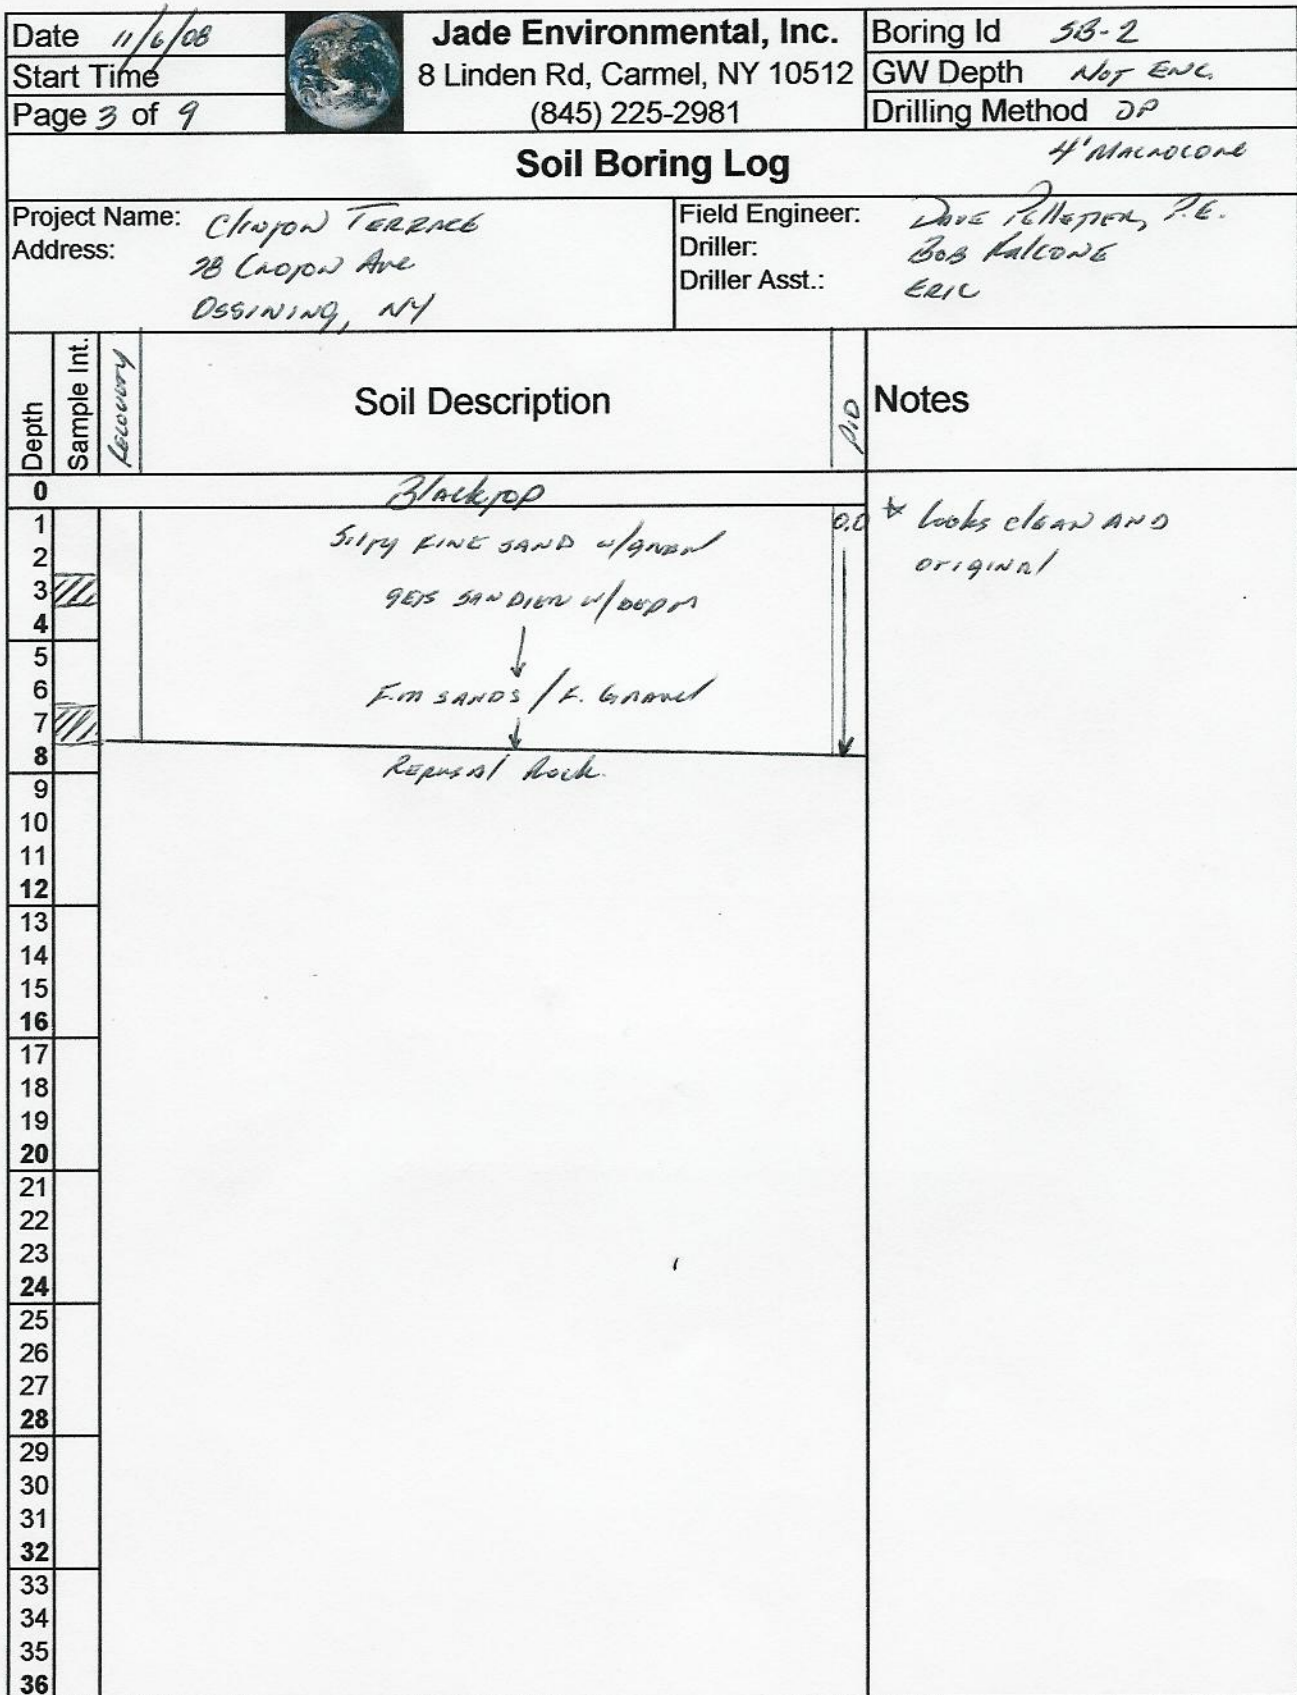 Date 11/6/08
Start Time
Page 3 of 9
Jade Environmental, Inc.
8 Linden Rd, Carmel, NY 10512
(845) 225-2981
Boring Id SB-2
GW Depth NOT ENC.
Drilling Method DP
4' MACROCORE
Soil Boring Log
Project Name: Clinton TERRACE
Address: 28 Croton Ave
OSSINING, NY
Field Engineer: DAVE PELLETIER, P.E.
Driller: BOB FALCONE
Driller Asst.: ERIC
Depth
Sample Int.
Recovery
Soil Description
PID
Notes
0 Blacktop
1 SILTY FINE SAND w/ 0.0 * looks clean AND
2 original
3 GETS SANDIER w/ DEPTH
4
5
6 F.M SANDS / F. GRAVEL
7
8 REFUSAL Rock.
9
10
11
12
13
14
15
16
17
18
19
20
21
22
23
24
25
26
27
28
29
30
31
32
33
34
35
36